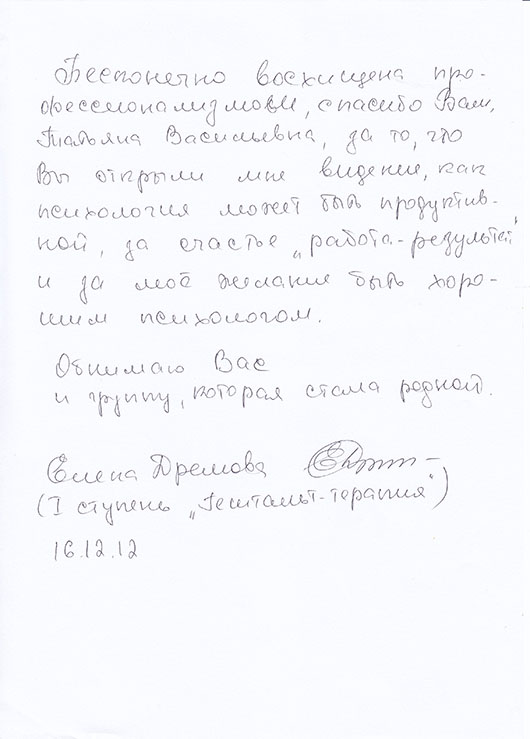 Бесконечно восхищена про-
фессионализмом, спасибо Вам,
Татьяна Васильевна, за то, что
Вы открыли мне видение, как
психология может быть продуктив-
ной, за счастье „работа-результат"
и за моё желание быть хоро-
шим психологом.
Обнимаю Вас
и группу, которая стала родной.
Елена Дремова
(I ступень „Гештальт-терапия")
16.12.12